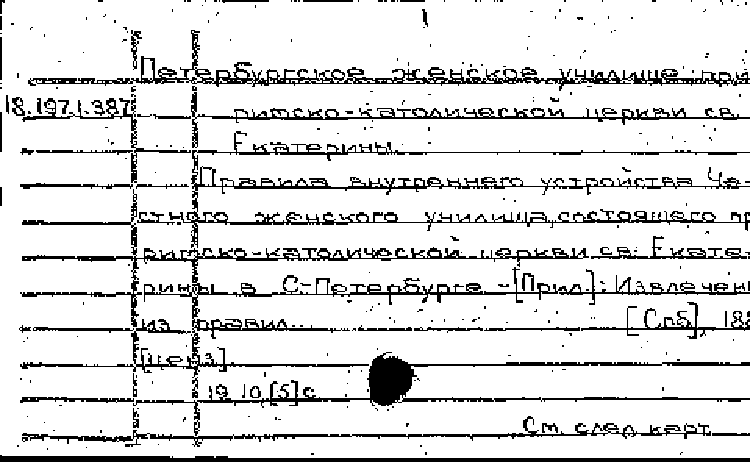 Петербургское женское училище при
18.197.1.387 римско-католической церкви св.
Екатерины.
Правила внутреннего устройства Ча-
стного женского училища, состоящего пр
римско-католической церкви св. Екате-
рины в С-Петербурге - [Прил.]: Извлечен
из правил... [Спб], 188
[ценз]
19, 10, [5] с
См. след. карт.